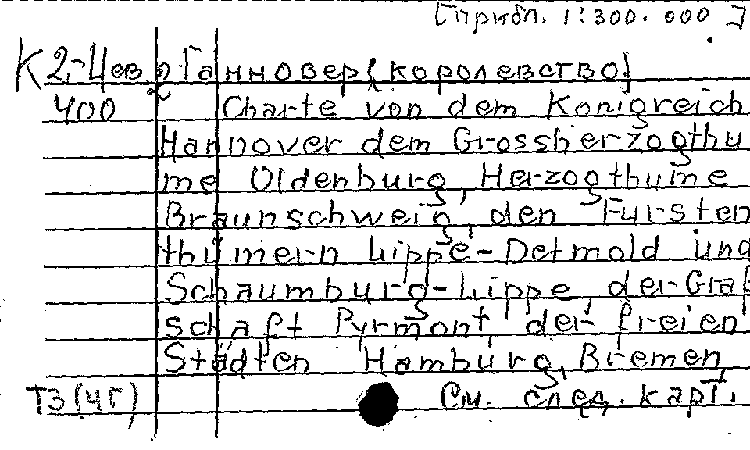 [Прибл. 1:300.000]
К 2-Цев 2 Ганновер (королевство)
400 Charte von dem Konigreich
Hannover dem Grossherzogthu
me Oldenburg, Herzogthume
Braunschweig, den Fursten
thümern Lippe-Detmold und
Schaumburg-Lippe, der Graf
schaft Pyrmont der freien
Städten Hamburg, Bremen
ТЗ (ЧГ) См. след. карт.